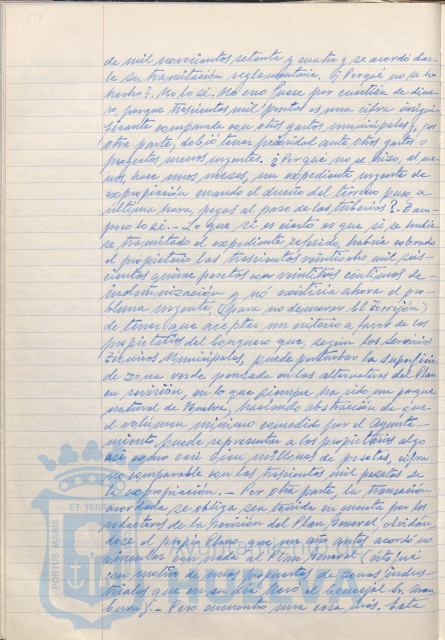 de mil novecientos setenta y cuatro y se acordó dar-
le su tramitación reglamentaria. ¿Porqué no se ha
hecho?. No lo sé. No creo fuese por cuestión de dine-
ro, porque trescientos mil pesetas es una cifra insigni-
ficante comparada con otros gastos municipales y, por
otra parte, debió tener prioridad ante otros gastos o
proyectos menos urgentes. ¿Porque no se hizo, al me-
nos, hace unos meses, un expediente urgente de
expropiación cuando el dueño del terreno puso, a
última hora, pegas al paso de las tuberías?. Tam-
poco lo sé.- Lo que si es cierto es que si se hubie-
se tramitado el expediente referido, habría cobrado
el propietario las trescientas veintiocho mil seis-
cientas quince pesetas con veintitres centimos de
indemnización y no existiría ahora el pro-
blema urgente, (para no demorar El Torrejón)
de tener que aceptar un criterio a favor de los
propietarios del Conquero que, según los Servicios
Técnicos Municipales, puede perturbar la superficie
de zona verde pensada en las alternativas del Plan
en revisión, en lo que siempre ha sido un parque
natural de Huelva, haciendo abstracción de que
el volúmen mínimo concedido por el Ayunta-
miento, puede representar a los propietarios algo
así como casi cien millones de pesetas, cifra
no comparable con las trescientas mil pesetas de
la expropiación.- Por otra parte, la transacción
acordada se obliga sea tenida en cuenta por los
redactores de la Revisión del Plan General, olvidán-
dose el propio Pleno que un año antes acordó no
vincular con nada al Plan General (ésto fué
con motivo de unas propuestas de zonas indus-
triales que en su día llevó el Concejal Sr.
).- Pero encuentro una cosa más. Esta
Ayuntamiento
PORTUS MARIS
ET TERRAE